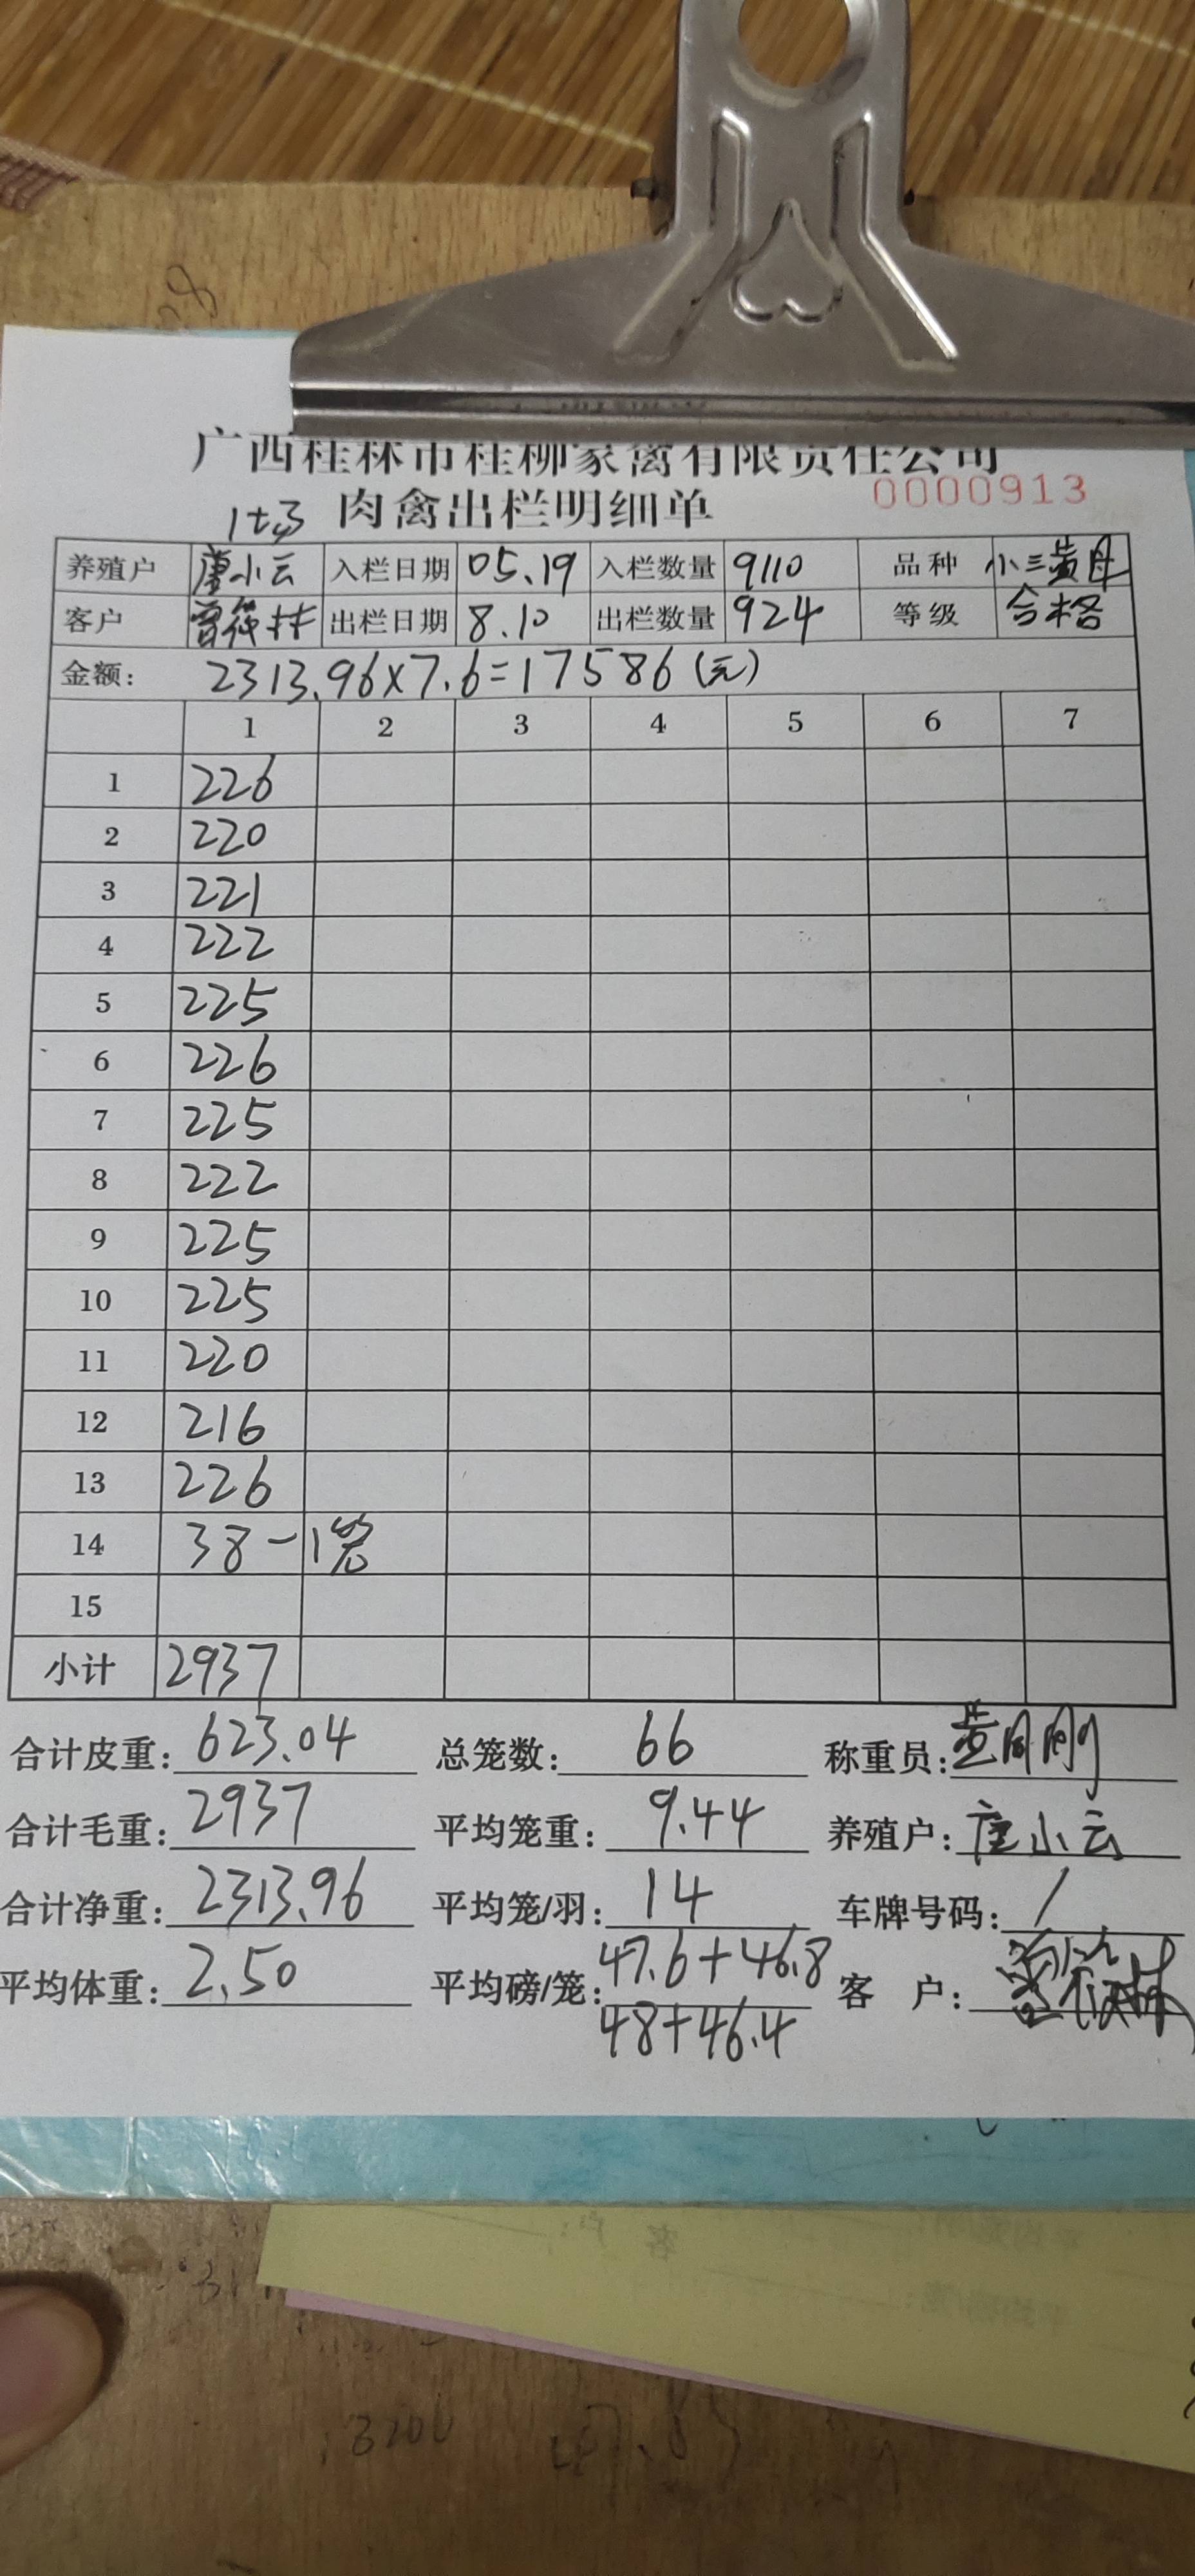 广西桂林市桂柳家禽有限责任公司
肉禽出栏明细单 0000913
养殖户 唐小云 入栏日期 05.19 入栏数量 9110 品种 小三黄母
客户 出栏日期 8.10 出栏数量 924 等级 合格
金额: 2313.96×7.6=17586(元)
1 2 3 4 5 6 7
1 226
2 220
3 221
4 222
5 225
6 226
7 225
8 222
9 225
10 225
11 220
12 216
13 226
14 38-1笼
15
小计 2937
合计皮重: 623.04 总笼数: 66 称重员:
合计毛重: 2937 平均笼重: 9.44 养殖户: 唐小云
合计净重: 2313.96 平均笼/羽: 14 车牌号码: /
平均体重: 2.50 平均磅/笼: 47.6+46.8 客 户:
48+46.4